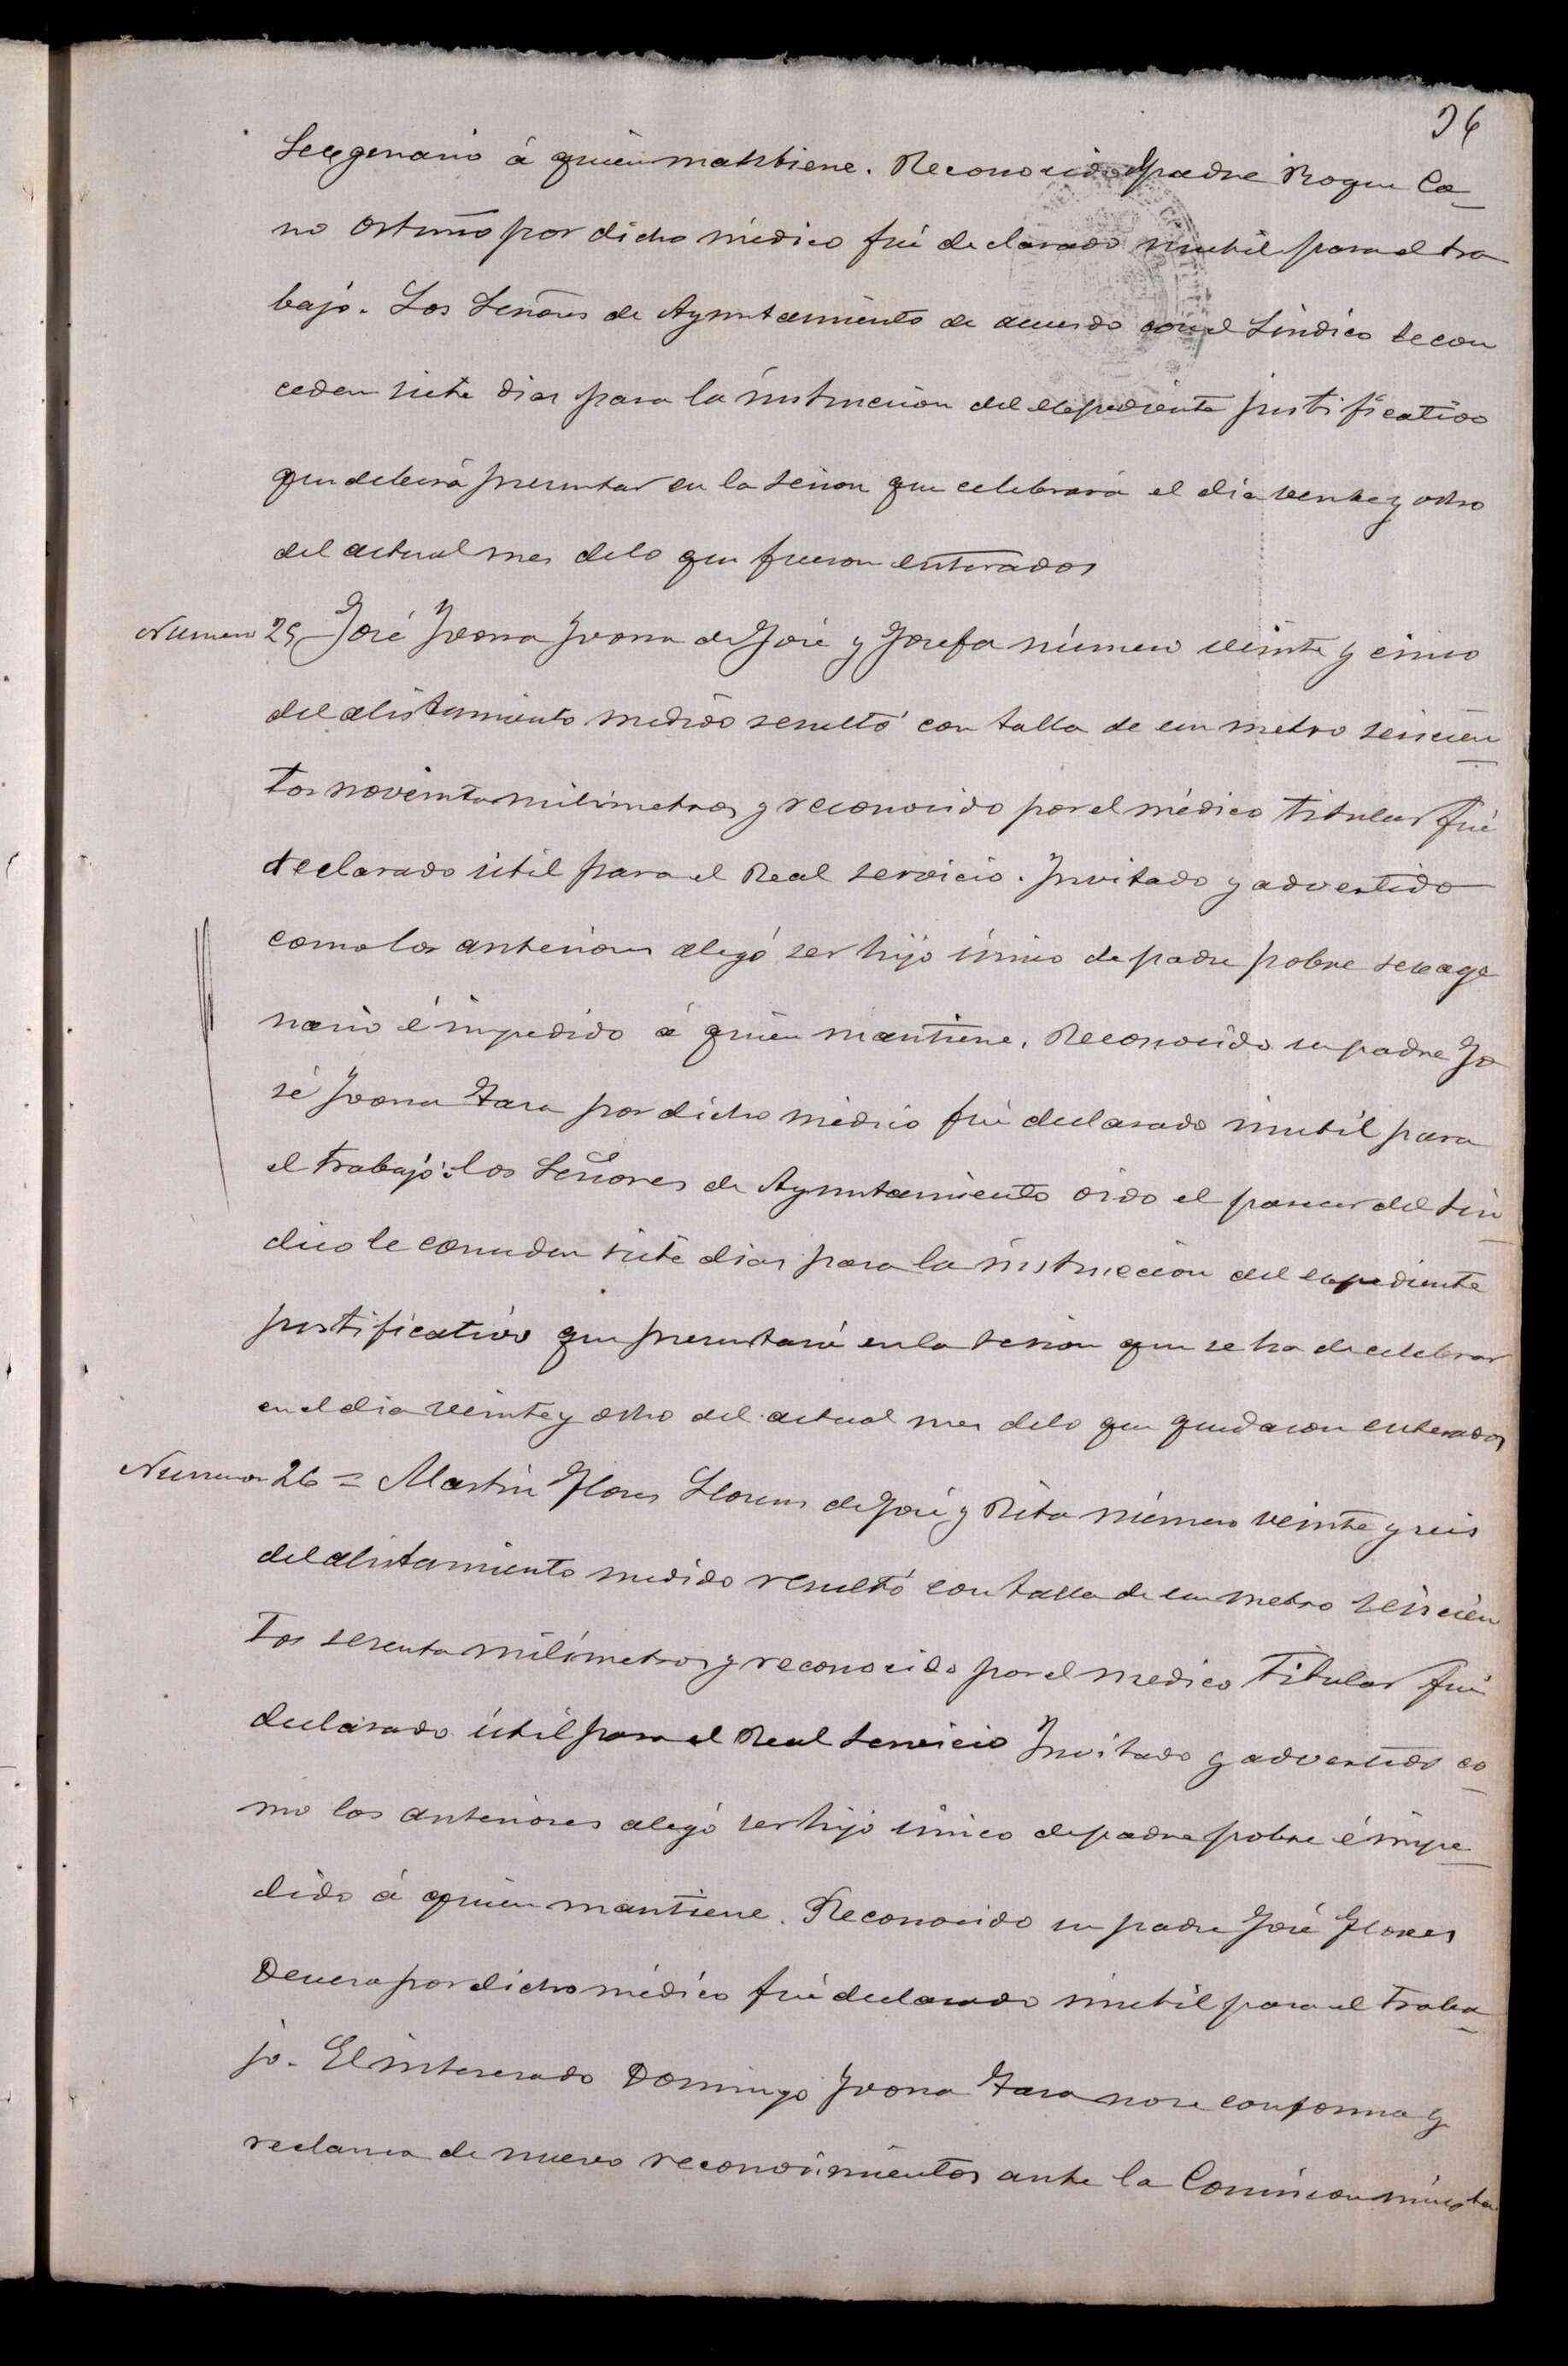 36
Sexgenario á quien mantiene. Reconocido padre Roque Ca-
no Ortuño por dicho médico fué declarado inutil para el tra
bajo. Los Señores de Ayuntamiento de acuerdo con el Sindico se con
ceden siete dias para la instruccion del expediente justificativo
que deberá presentar en la sesion que celebrará el dia veinte y ocho
del actual mes de lo que fueron enterados
Numero 25 José Ivorra Ivorra de José y Josefa número veinte y cinco
del alistamiento medido resultó con talla de un metro seiscien
tos noventa milimetros y reconocido por el médico titular fué
declarado útil para el Real servicio. Invitado y advertido
como los anteriores alegó ser hijo único de padre pobre sexage
nario é impedido á quien mantiene. Reconocido su padre Jo
sé Ivorra Zara por dicho médico fué declarado inutil para
el trabajo: los Señores de Ayuntamiento oido el parecer del Sin
dico le conceden siete dias para la instruccion del expediente
justificativo que presentará en la sesion que se ha de celebrar
en el dia veinte y ocho del actual mes de lo que quedaron enterados
Numero 26 = Martin Flores Llorens de José y Rita número veinte y seis
del alistamiento medido resultó con talla de un metro seiscien
tos sesenta milimetros y reconocido por el medico titular fué
declarado útil para el Real servicio Invitado y advertido co
mo los anteriores alegó ser hijo único de padre pobre é impe
dido á quien mantiene. Reconocido su padre José Flores
Devesa por dicho médico fué declarado inutil para el traba
jo. El interesado Domingo Ivorra Zara no se conforma y
reclama de nuevo reconocimientos ante la Comision